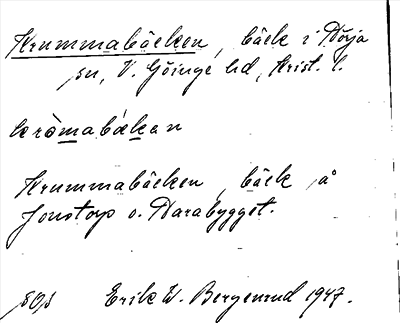 Krummabäcken, bäck i Nörja
sn, V. Göinge hd, Krist. l.
kròmabäkan
Krummabäcken, bäck på
Jonstorp o. Narabygget.
Erik W. Bergenrud 1947.